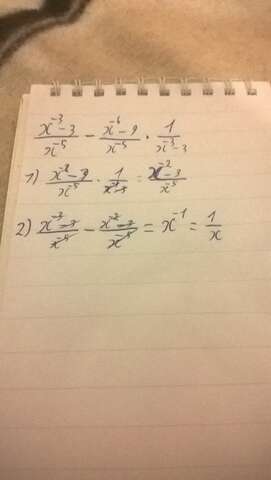 x⁻³-3/x⁻⁵ - x⁻⁶-9/x⁻⁵ · 1/x⁻³-3
1) x⁻²-9/x⁻⁵ · 1/x⁻²-3 = x⁻²-3/x⁻⁵
2) x⁻³-3/x⁻⁵ - x⁻²-3/x⁻⁵ = x⁻¹ = 1/x